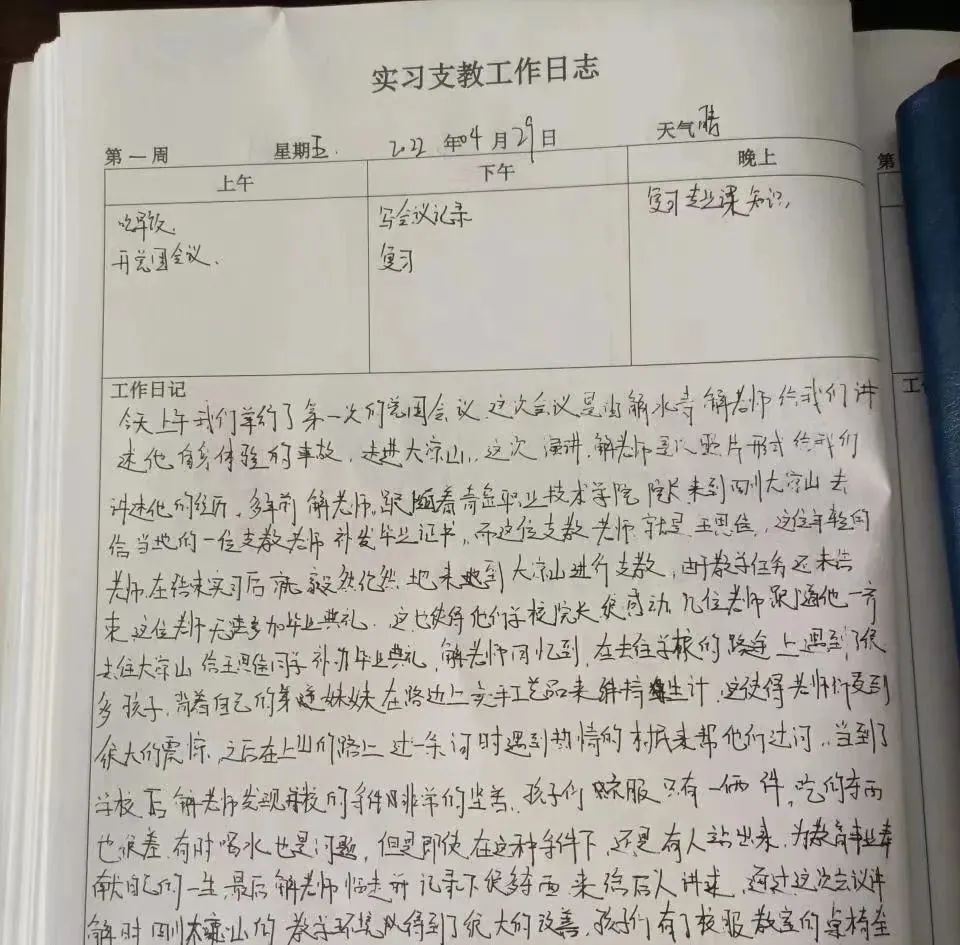 实习支教工作日志
第一周 星期五. 2022 年04月29日 天气晴
上午 下午 晚上 第
吃早饭. 写会议记录 复习专业课知识,
开党团会议. 复习
工作日记 工
今天上午我们举行了第一次的党团会议.这次会议是由解水寺解老师给我们讲
述他自身体验的事故,走进大凉山,,这次演讲,解老师是以照片形式给我们
讲述他的经历,多年前解老师,跟随着奇台职业技术学院院长来到四川大凉山去
给当地的一位支教老师补发毕业证书,而这位支教老师就是王思佳,这位年轻的
老师在结束实习后就毅然化然地来地到大凉山进行支教,由于教学任务还未结
束这位老师无法参加毕业典礼.这也使得他们学校院长很感动几位老师跟随他一齐
去往大凉山给王思佳同学补办毕业典礼,解老师回忆到,在去往学校的路途上遇到了很
多孩子,背着自己的弟弟妹妹在路边上卖手工艺品来维持生计,这使得老师们受到
很大的震惊.之后在上山的路上过一条河时遇到热情的村民来帮他们过河,当到了
学校后解老师发现学校的条件非常的差,孩子们的衣服只有一俩件,吃的东西
也很差,有时喝水也是问题,但是即使在这种条件下,还是有人站出来,为教育事业奉
献自己的一生.最后解老师临走前记录下很多东西来给后人讲述,通过这次会议讲
解时四川大凉山的教学环境以得到了很大的改善,孩子们有了校服教室的桌椅坐